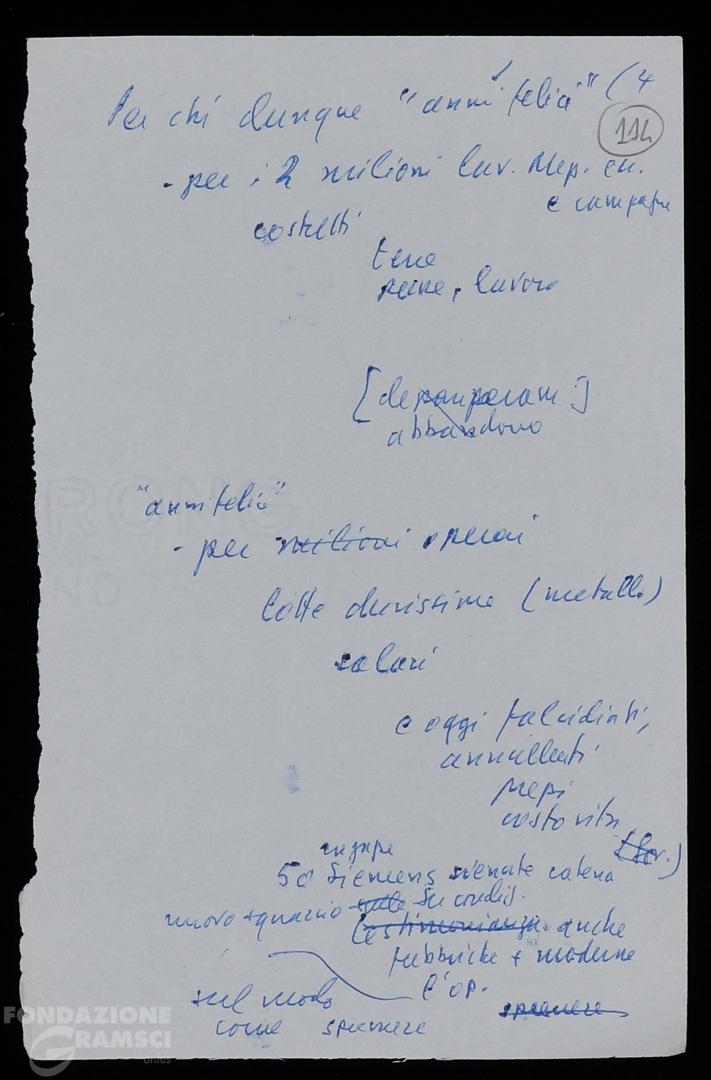 Per chi dunque "anni felici" (4
114
- per i 2 milioni lav. Mep. en.
e campagne
costretti
terre
pane, lavoro
[depauperam.]
abbandono
"anni felici"
- per milioni operai
lotte durissime (metallo)
salari
e oggi falcidiati,
annullati
prezzi
costo vita
50 Siemens catena
nuovo squarcio sulle su condiz.
(testimonianza anche
fabbriche + moderne
c'è op.
sul modo
come spremere spremere
FONDAZIONE
GRAMSCI
onlus